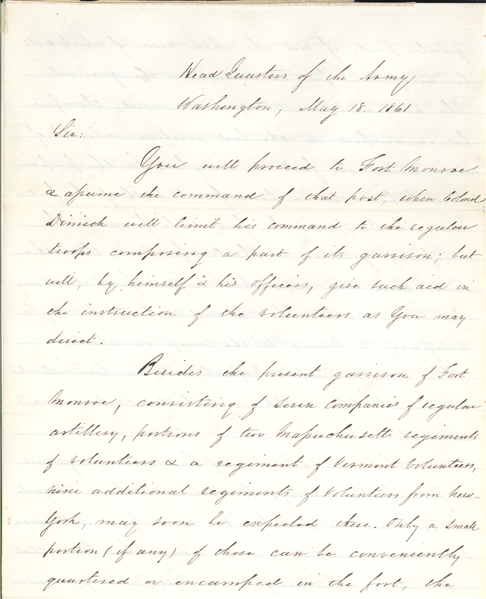 Head Quarters of the Army
Washington, May 18. 1861
Sir:
You will proceed to Fort Monroe
& assume the command of that post, when Colonel
Dimick will limit his command to the regular
troops composing a part of its garrison; but
will, by himself & his officers, give such aid in
the instruction of the volunteers as You may
direct.
Besides the present garrison of Fort
Monroe, consisting of seven Companies of regular
artillery, portions of two Massachusetts regiments
of volunteers & a regiment of Vermont Volunteers,
nine additional regiments of Volunteers from New-
York, may soon be expected there. Only a small
portion (if any) of these can be conveniently
quartered or encamped in the fort, the